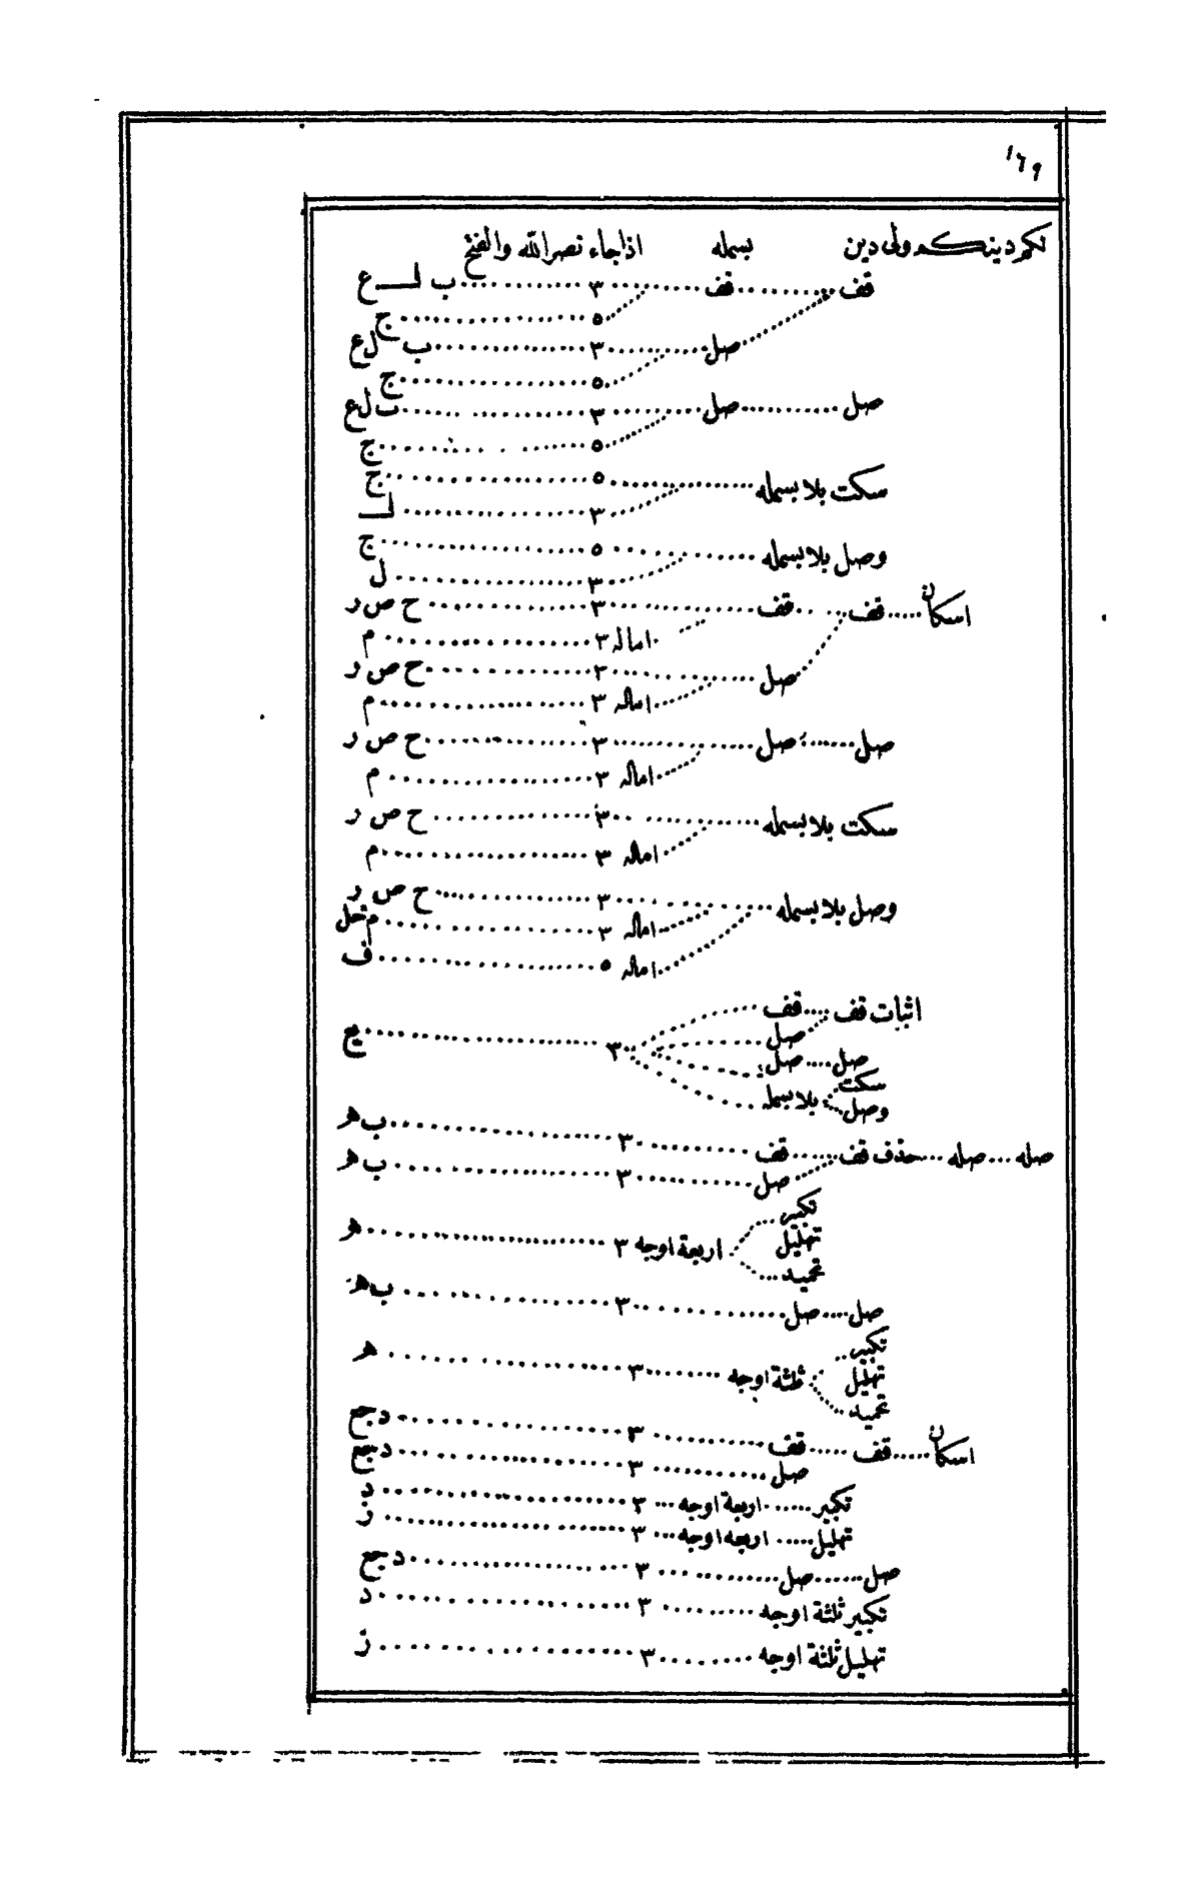 ١٦٩
لكم دينكم ولى دين بسمله اذا جاء نصر الله والفتح
قف قف ٣ ب ل ع
٥ ج
صل ٣ ب ل ع
٥ ج
صل صل ٣ ب ل ع
٥ ج
سكت بلا بسمله ٥ ج
٣ ل
وصل بلا بسمله ٥ ج
٣ ل
اسكان قف قف ٣ ح ص ر
اماله ٣ م
صل ٣ ح ص ر
اماله ٣ م
صل صل ٣ ح ص ر
اماله ٣ م
سكت بلا بسمله ٣ ح ص ر
اماله ٣ م
وصل بلا بسمله ٣ ح ص ر
اماله ٣ م خل
اماله ٥ ف
اثبات قف قف
صل
٣ يع
صل صل
سكت
وصل بلا بسمله
صله صله حذف قف قف ٣ ب ھ
صل ٣ ب ھ
تكبير
تهليل اربعة اوجه ٣ ھ
تحميد
صل صل ٣ ب ھ
تكبير
تهليل ثلثة اوجه ٣ ھ
تحميد
اسكان قف قف ٣ د جع
صل ٣ د جع
تكبير اربعة اوجه ٣ د
تهليل اربعه اوجه ٣ ز
صل صل ٣ د جع
تكبير ثلثة اوجه ٣ د
تهليل ثلثة اوجه ٣ ز